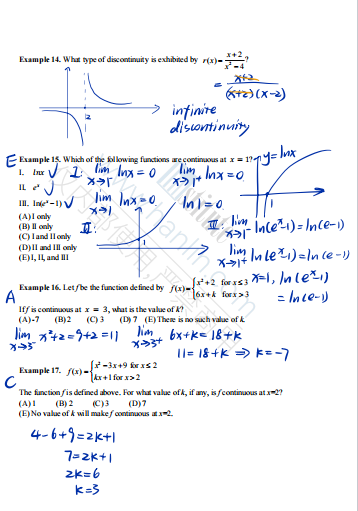 Example 14. What type of discontinuity is exhibited by r(x)= (x+2)/(x²-4)?
= (x+2)/((x+2)(x-2))
2
infinite
discontinuity
E Example 15. Which of the following functions are continuous at x = 1?
y=lnx
I. lnx √ I: lim x→1⁻ lnx=0 lim x→1⁺ lnx=0
II. eˣ √
III. ln(eˣ-1) √ lim x→1 lnx=0 ln1=0
(A) I only
(B) II only
(C) I and II only
(D) II and III only
(E) I, II, and III
II:
1
1
III: lim x→1⁻ ln(eˣ-1)=ln(e-1)
lim x→1⁺ ln(eˣ-1)=ln(e-1)
x=1, ln(eˣ-1)
=ln(e-1)
A Example 16. Let f be the function defined by f(x)= { x²+2 for x≤3
6x+k for x>3
If f is continuous at x = 3, what is the value of k?
(A)-7 (B)2 (C) 3 (D)7 (E)There is no such value of k.
lim x→3⁻ x²+2=9+2=11 lim x→3⁺ 6x+k=18+k
11=18+k ⇒ k=-7
C Example 17. f(x)= { x²-3x+9 for x≤2
kx+1 for x>2
The function f is defined above. For what value of k, if any, is f continuous at x=2?
(A) 1 (B) 2 (C) 3 (D) 7
(E) No value of k will make f continuous at x=2.
4-6+9=2k+1
7=2k+1
2k=6
k=3